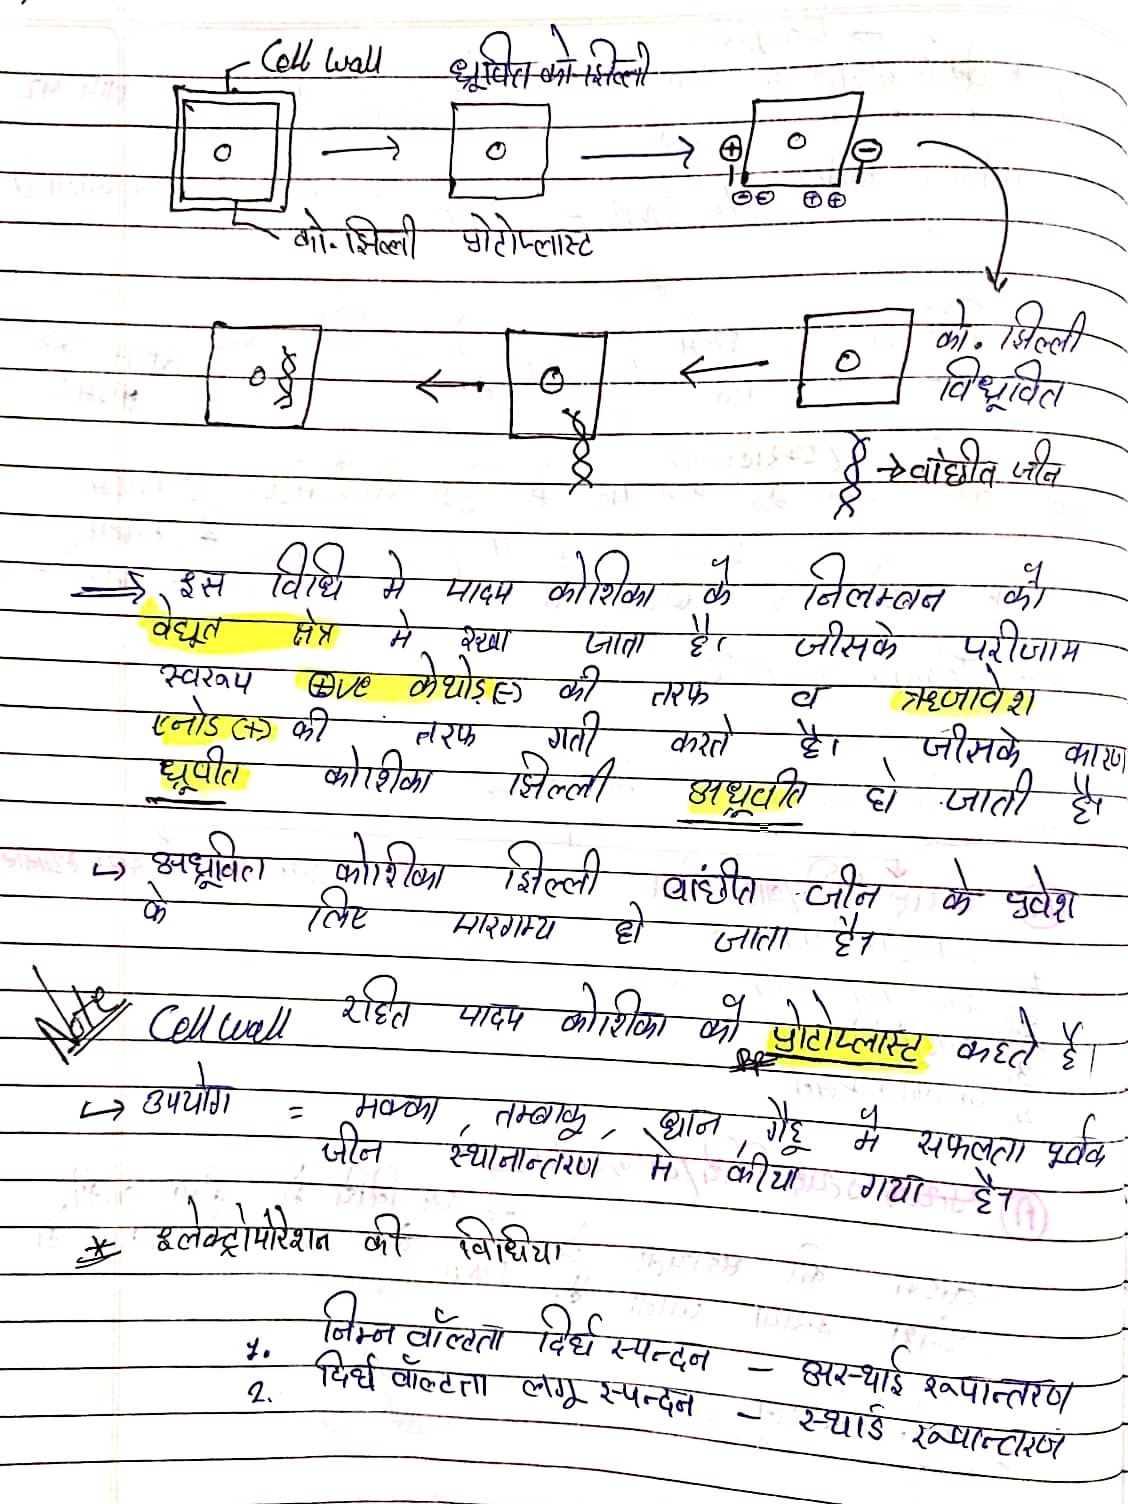 Cell wall
ध्रूवित को. झिल्ली
को. झिल्ली
प्रोटोप्लास्ट
को. झिल्ली
विध्रूवित
→ वांछीत जीन
⇒ इस विधि मे पादप कोशिका के निलम्बन को
वेधूत क्षेत्र मे रखा जाता है। जीसके परीणाम
स्वरूप ⊕ve केथोड़ (-) की तरफ व ऋणावेश
एनोड (+) की तरफ गती करते है। जीसके कारण
ध्रूवीत कोशिका झिल्ली अध्रूवीत हो जाती है।
↪ अध्रूवित कोशिका झिल्ली वांछीत जीन के प्रवेश
के लिए पारगम्य हो जाता है।
Note Cell wall रहित पादप कोशिका को प्रोटोप्लास्ट कहते है।
↪ उपयोग = मक्का, तम्बाकू, धान, गैहू मे सफलता पूर्वक
जीन स्थानान्तरण मे कीया गया है।
* इलेक्ट्रोपोरेशन की विधिया
1. निम्न वॉल्टता दिर्घ स्पन्दन - अस्थाई रूपान्तरण
2. दिर्घ वॉल्टता लगू स्पन्दन - स्थाई रूपान्तरण